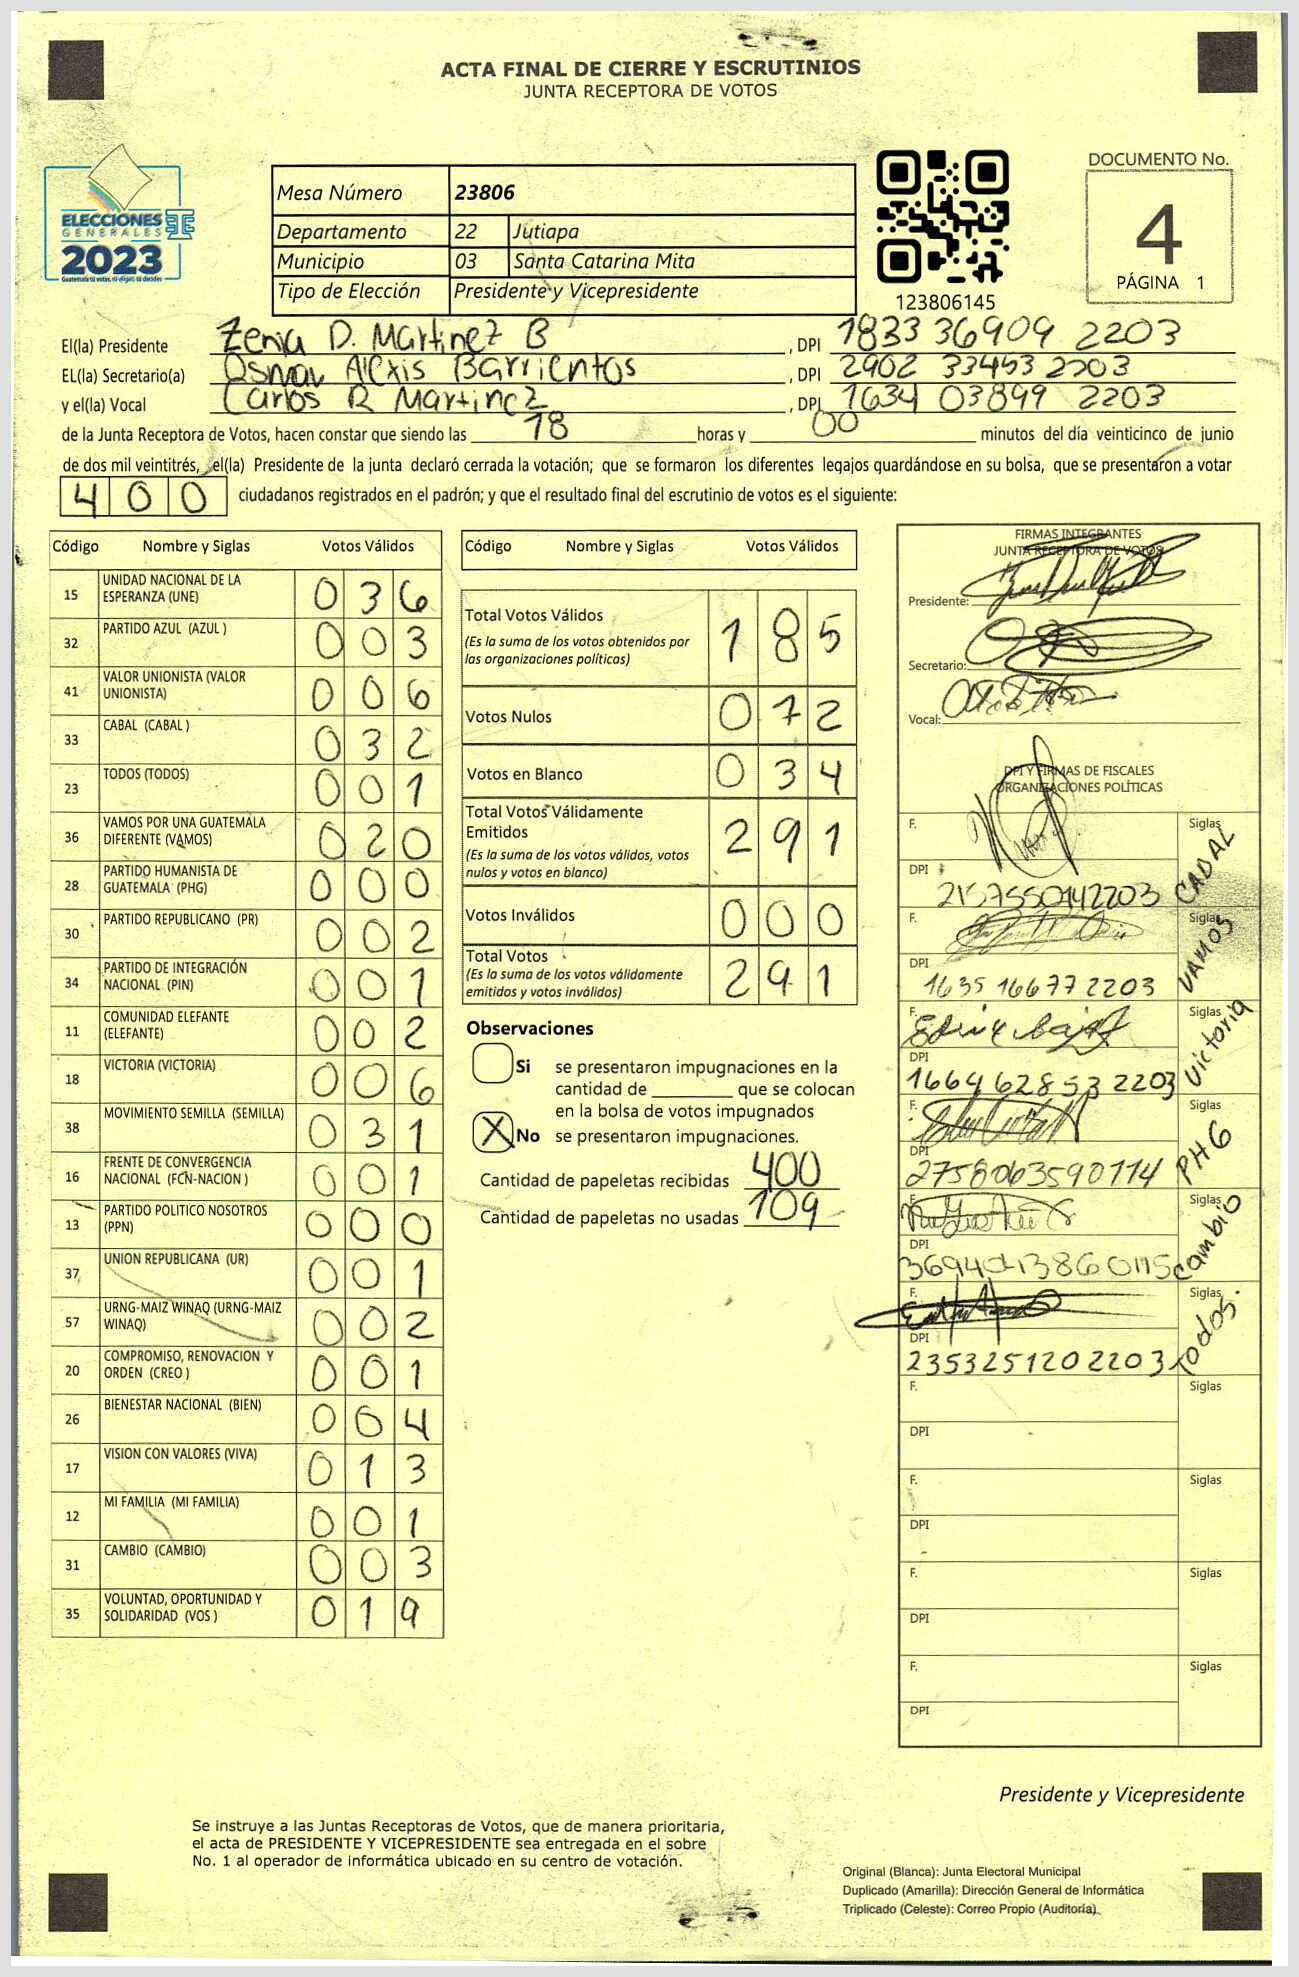 ACTA FINAL DE CIERRE Y ESCRUTINIOS
JUNTA RECEPTORA DE VOTOS
ELECCIONES
GENERALES
2023
Guatemala tú votas, tú eliges, tú decides
Mesa Número 23806
Departamento 22 Jutiapa
Municipio 03 Santa Catarina Mita
Tipo de Elección Presidente y Vicepresidente
123806145
DOCUMENTO No.
4
PÁGINA 1
El(la) Presidente Zenia D. Martinez B , DPI 1833 36909 2203
EL(la) Secretario(a) Osmar Alexis Barrientos , DPI 2902 33453 2203
y el(la) Vocal Carlos R Martinez , DPI 1634 03899 2203
de la Junta Receptora de Votos, hacen constar que siendo las 18 horas y 00 minutos del día veinticinco de junio
de dos mil veintitrés, el(la) Presidente de la junta declaró cerrada la votación; que se formaron los diferentes legajos guardándose en su bolsa, que se presentaron a votar
400 ciudadanos registrados en el padrón; y que el resultado final del escrutinio de votos es el siguiente:
Código Nombre y Siglas Votos Válidos
15 UNIDAD NACIONAL DE LA ESPERANZA (UNE) 036
32 PARTIDO AZUL (AZUL ) 003
41 VALOR UNIONISTA (VALOR UNIONISTA) 006
33 CABAL (CABAL ) 032
23 TODOS (TODOS) 001
36 VAMOS POR UNA GUATEMALA DIFERENTE (VAMOS) 020
28 PARTIDO HUMANISTA DE GUATEMALA (PHG) 000
30 PARTIDO REPUBLICANO (PR) 002
34 PARTIDO DE INTEGRACIÓN NACIONAL (PIN) 001
11 COMUNIDAD ELEFANTE (ELEFANTE) 002
18 VICTORIA (VICTORIA) 006
38 MOVIMIENTO SEMILLA (SEMILLA) 031
16 FRENTE DE CONVERGENCIA NACIONAL (FCN-NACION ) 001
13 PARTIDO POLITICO NOSOTROS (PPN) 000
37 UNION REPUBLICANA (UR) 001
57 URNG-MAIZ WINAQ (URNG-MAIZ WINAQ) 002
20 COMPROMISO, RENOVACION Y ORDEN (CREO ) 001
26 BIENESTAR NACIONAL (BIEN) 004
17 VISION CON VALORES (VIVA) 013
12 MI FAMILIA (MI FAMILIA) 001
31 CAMBIO (CAMBIO) 003
35 VOLUNTAD, OPORTUNIDAD Y SOLIDARIDAD (VOS ) 019
Código Nombre y Siglas Votos Válidos
Total Votos Válidos 185
(Es la suma de los votos obtenidos por las organizaciones políticas)
Votos Nulos 072
Votos en Blanco 034
Total Votos Válidamente Emitidos 291
(Es la suma de los votos válidos, votos nulos y votos en blanco)
Votos Inválidos 000
Total Votos 291
(Es la suma de los votos válidamente emitidos y votos inválidos)
Observaciones
Si se presentaron impugnaciones en la
cantidad de ________ que se colocan
en la bolsa de votos impugnados
X No se presentaron impugnaciones.
Cantidad de papeletas recibidas 400
Cantidad de papeletas no usadas 109
FIRMAS INTEGRANTES
JUNTA RECEPTORA DE VOTOS
Presidente:
Secretario:
Vocal:
DPI Y FIRMAS DE FISCALES
ORGANIZACIONES POLÍTICAS
F. Siglas CABAL
DPI 2157550442203
F. Siglas VAMOS
DPI 1635 16677 2203
F. Siglas Victoria
DPI 1664 62853 2203
F. Siglas PHG
DPI 2758063590114
F. Siglas Cambio
DPI
F. Siglas Todos.
DPI 2353251202203
F. Siglas
DPI
F. Siglas
DPI
F. Siglas
DPI
F. Siglas
DPI
Presidente y Vicepresidente
Se instruye a las Juntas Receptoras de Votos, que de manera prioritaria,
el acta de PRESIDENTE Y VICEPRESIDENTE sea entregada en el sobre
No. 1 al operador de informática ubicado en su centro de votación.
Original (Blanca): Junta Electoral Municipal
Duplicado (Amarilla): Dirección General de Informática
Triplicado (Celeste): Correo Propio (Auditoría)